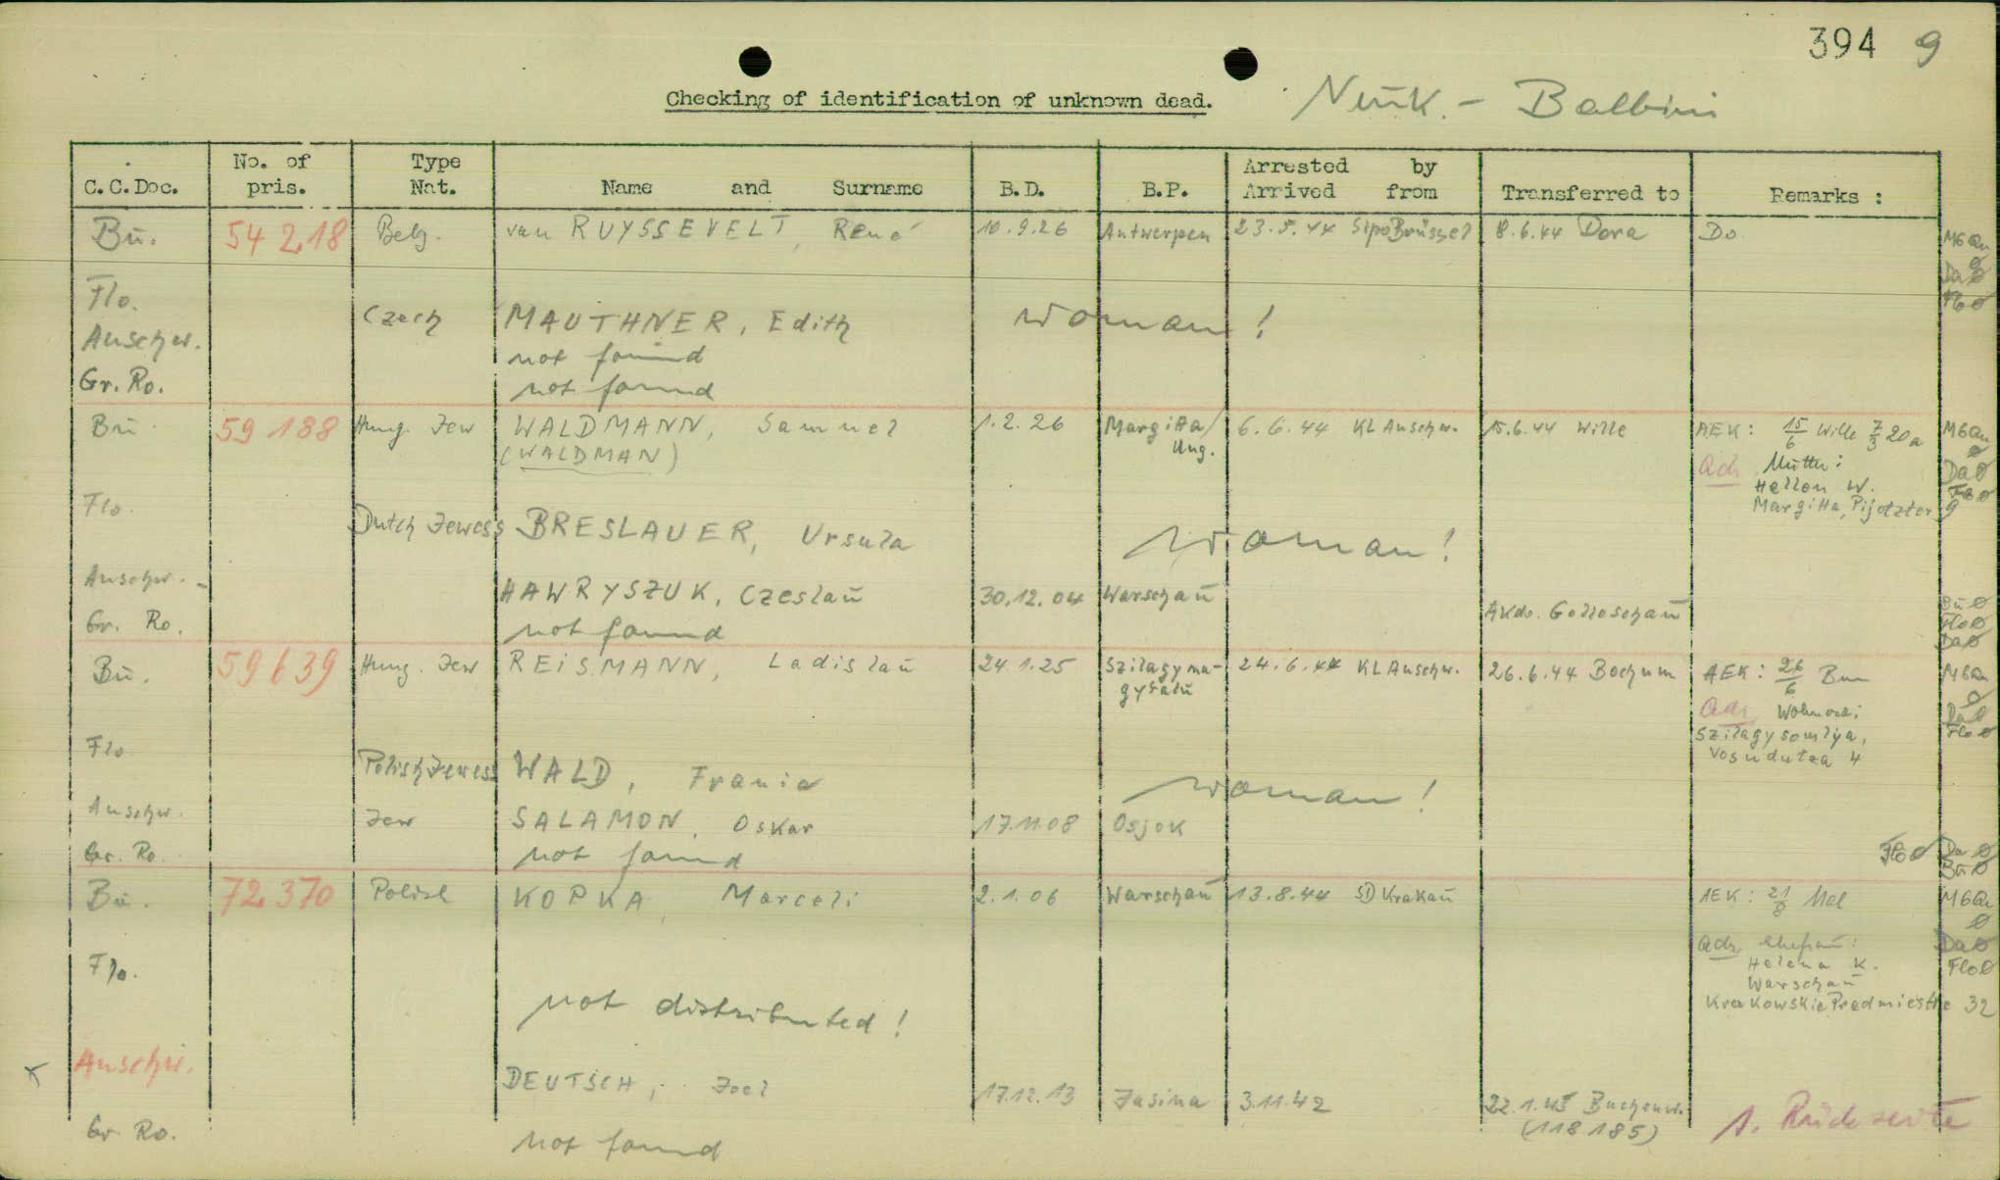 394 9
Checking of identification of unknown dead.
C.C.Doc. No. of pris. Type Nat. Name and Surname B.D. B.P. Arrested by Arrived from Transferred to Remarks :
Bu. 54 218 Belg. van RUYSSEVELT, René 10.9.26 Antwerpen 23.5.44 Sipo Brüssel 8.6.44 Dora Do
Flo. Czech MAUTHNER, Edith woman!
Auschw. not found
Gr. Ro. not found
Bu. 59 188 Hung. Jew WALDMANN, Samuel 1.2.26 Margitta/ Ung. 6.6.44 KL Auschw. 15.6.44 Wille AEK: 15/6 Wille 7/3 20a
(WALDMAN) Adr. Mutter:
Hellen W.
Margitta,
Flo. Dutch Jewess BRESLAUER, Ursula woman!
Auschw. - HAWRYSZUK, Czeslau 30.12.04 Warschau Akdo. Golleschau
Gr. Ro. not found
Bu. 59 639 Hung. Jew REISMANN, Ladislau 24.1.25 24.6.44 KL Auschw. 26.6.44 Bochum AEK: 26/6
Adr. Wohnort:
Szilagysomlya,
4
Flo Polish Jewess WALD, Frania woman!
Auschw. Jew SALAMON, Oskar 17.11.08 Osjok
Gr. Ro. not found
Bu. 72 370 Polish KOPKA, Marceli 2.1.06 Warschau 13.8.44 SD Krakau AEK: 21/8
Adr. Ehefrau:
Helena K.
Warschau
32
Flo. not distributed!
Auschw. DEUTSCH, Joel 17.12.13 Jasina 3.11.42 22.1.45 Buchenw.
(118 185) s. Rückseite
Gr. Ro. not found